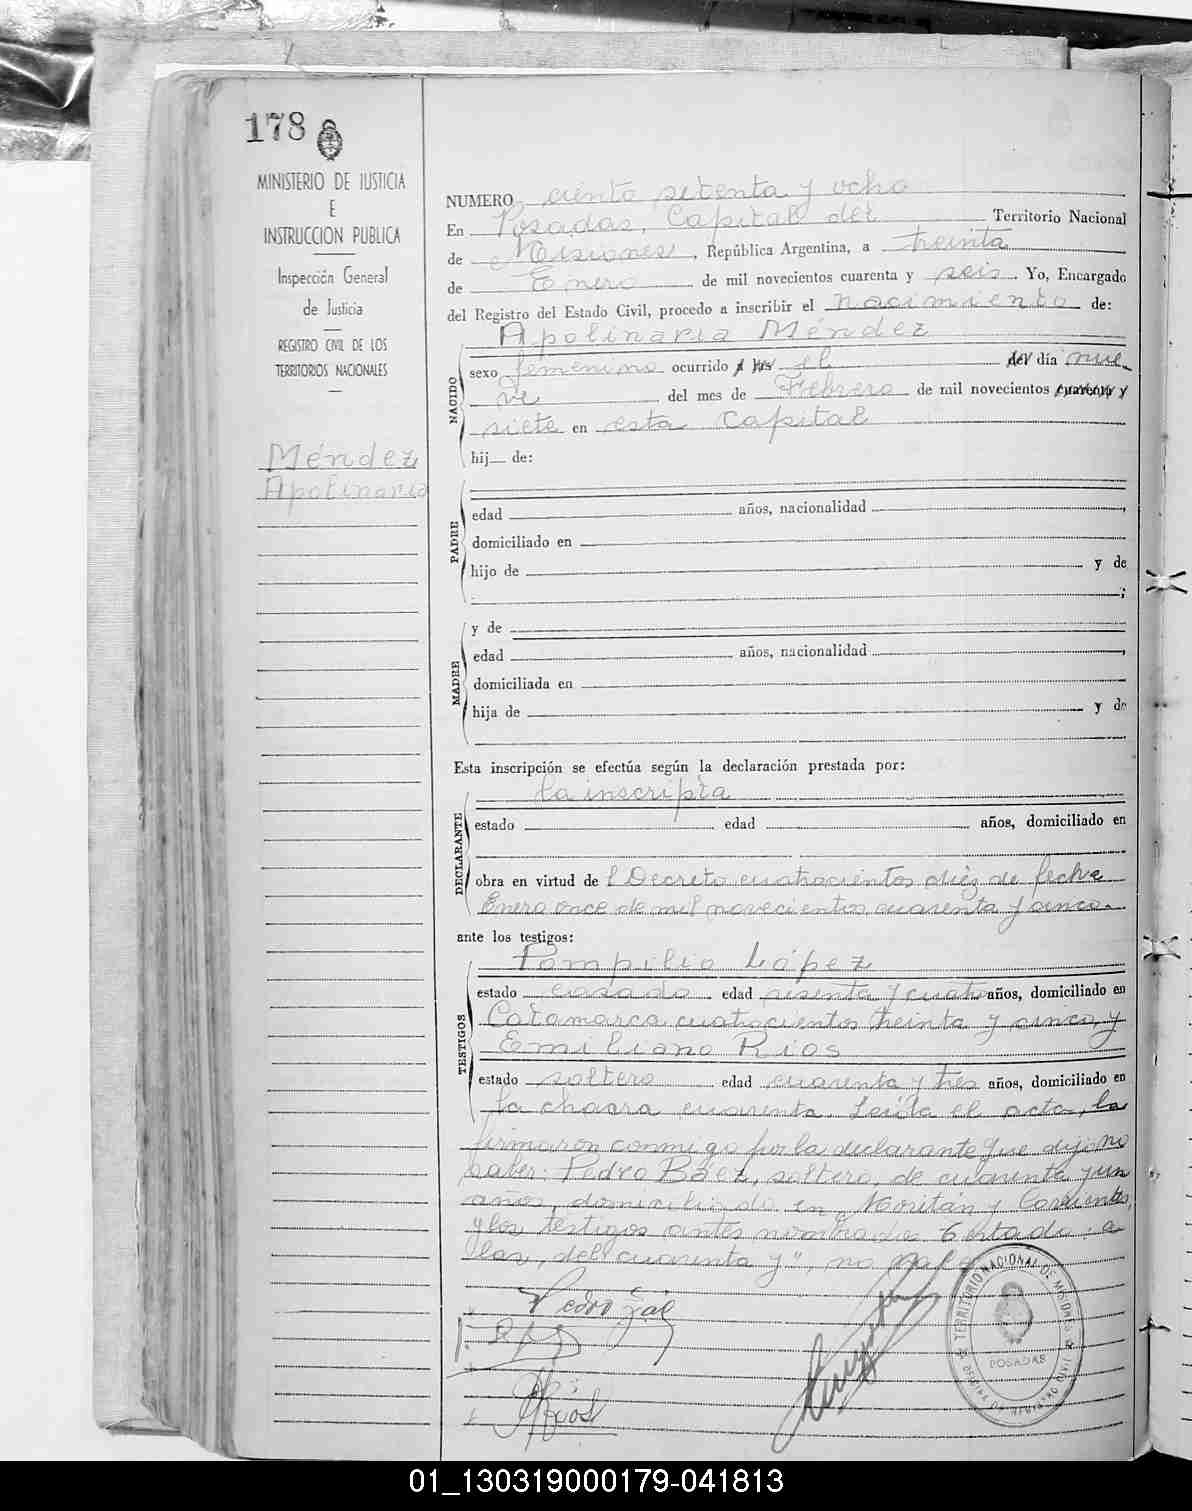 178
MINISTERIO DE JUSTICIA
E
INSTRUCCION PUBLICA
Inspección General
de Justicia
REGISTRO CIVIL DE LOS
TERRITORIOS NACIONALES
Méndez
Apolinaria
NUMERO ciento setenta y ocho
En Posadas, Capital del Territorio Nacional
de Misiones, República Argentina, a treinta
de Enero de mil novecientos cuarenta y seis. Yo, Encargado
del Registro del Estado Civil, procedo a inscribir el nacimiento de:
NACIDO
Apolinaria Méndez
sexo femenino ocurrido a las el del día nue-
ve del mes de Febrero de mil novecientos cuarenta y
siete en esta Capital
hij de:
PADRE
edad años, nacionalidad ,
domiciliado en
hijo de y de
;
MADRE
y de
edad años, nacionalidad ,
domiciliada en
hija de y de
Esta inscripción se efectúa según la declaración prestada por:
DECLARANTE
la inscripta
estado edad años, domiciliado en
obra en virtud de l Decreto cuatrocientos diez de fecha
Enero once de mil novecientos cuarenta y cinco.
ante los testigos:
TESTIGOS
Pompilio López
estado casado edad sesenta y cuatro años, domiciliado en
Catamarca cuatrocientos treinta y cinco, y
Emiliano Rios
estado soltero edad cuarenta y tres años, domiciliado en
la chacra cuarenta. Leída el acta, la
firmaron conmigo por la declarante que dijo no
saber: Pedro Báez, soltero, de cuarenta y un
años, domiciliado en y Corrientes,
y los testigos antes nombrados. Testado: a
las, del cuarenta y", no vale
TERRITORIO NACIONAL DE MISIONES
POSADAS
01_130319000179-041813